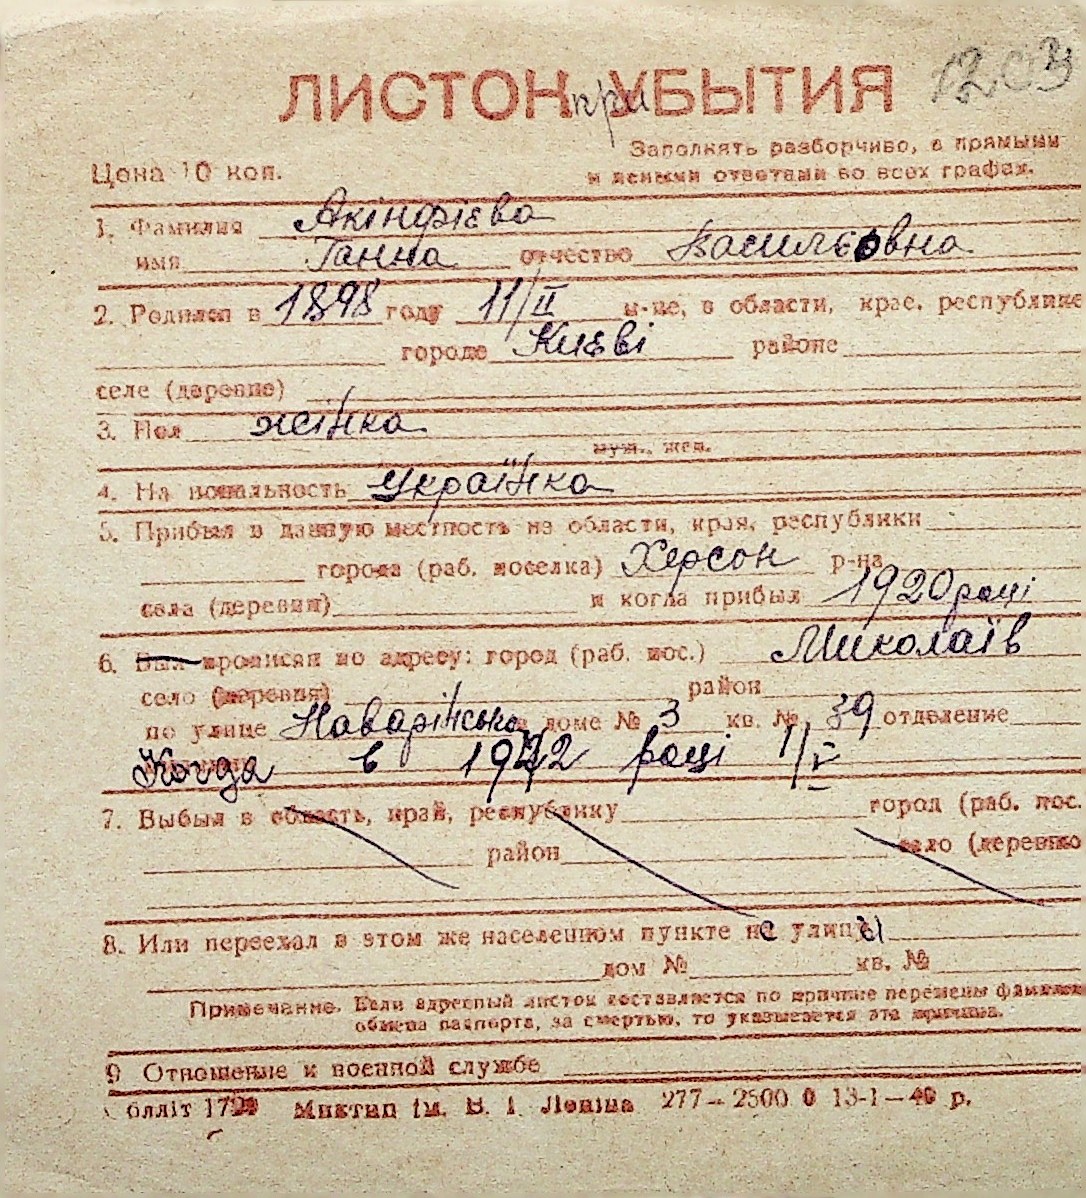 1203
ЛИСТОК при УБЫТИЯ
Заполнять разборчиво, с прямыми
Цена 10 коп.
и ясными ответами во всех графах.
1. Фамилия Акінфієва
имя Ганна отчество Васильєовна
2. Родился в 1898 году 11/II м-це, в области, крае, республике
городе Києві районе
селе (деревне)
3. Пол жінка
муж., жен.
4. Национальность Українка
5. Прибыл в данную местность из области, края, республики
города (раб. поселка) Херсон р-на
села (деревни) и когда прибыл 1920 році
6. Был прописан по адресу: город (раб. пос.) Миколаїв
село (деревня) район
по улице Наварінська доме № 3 кв. № 39 отделение
Когда в 1942 році 1/V
7. Выбыл в область, край, республику город (раб. пос.
район село (деревню
8. Или переехал в этом же населенном пункте не улицы
дом № кв. №
Примечание. Если адресный листок составляется по причине перемены фамилии
обмена паспорта, за смертью, то указывается эта причина.
9 Отношение к военной службе
Миктип ім. В. І. Леніна 277—2500 0 13-1—40 р.